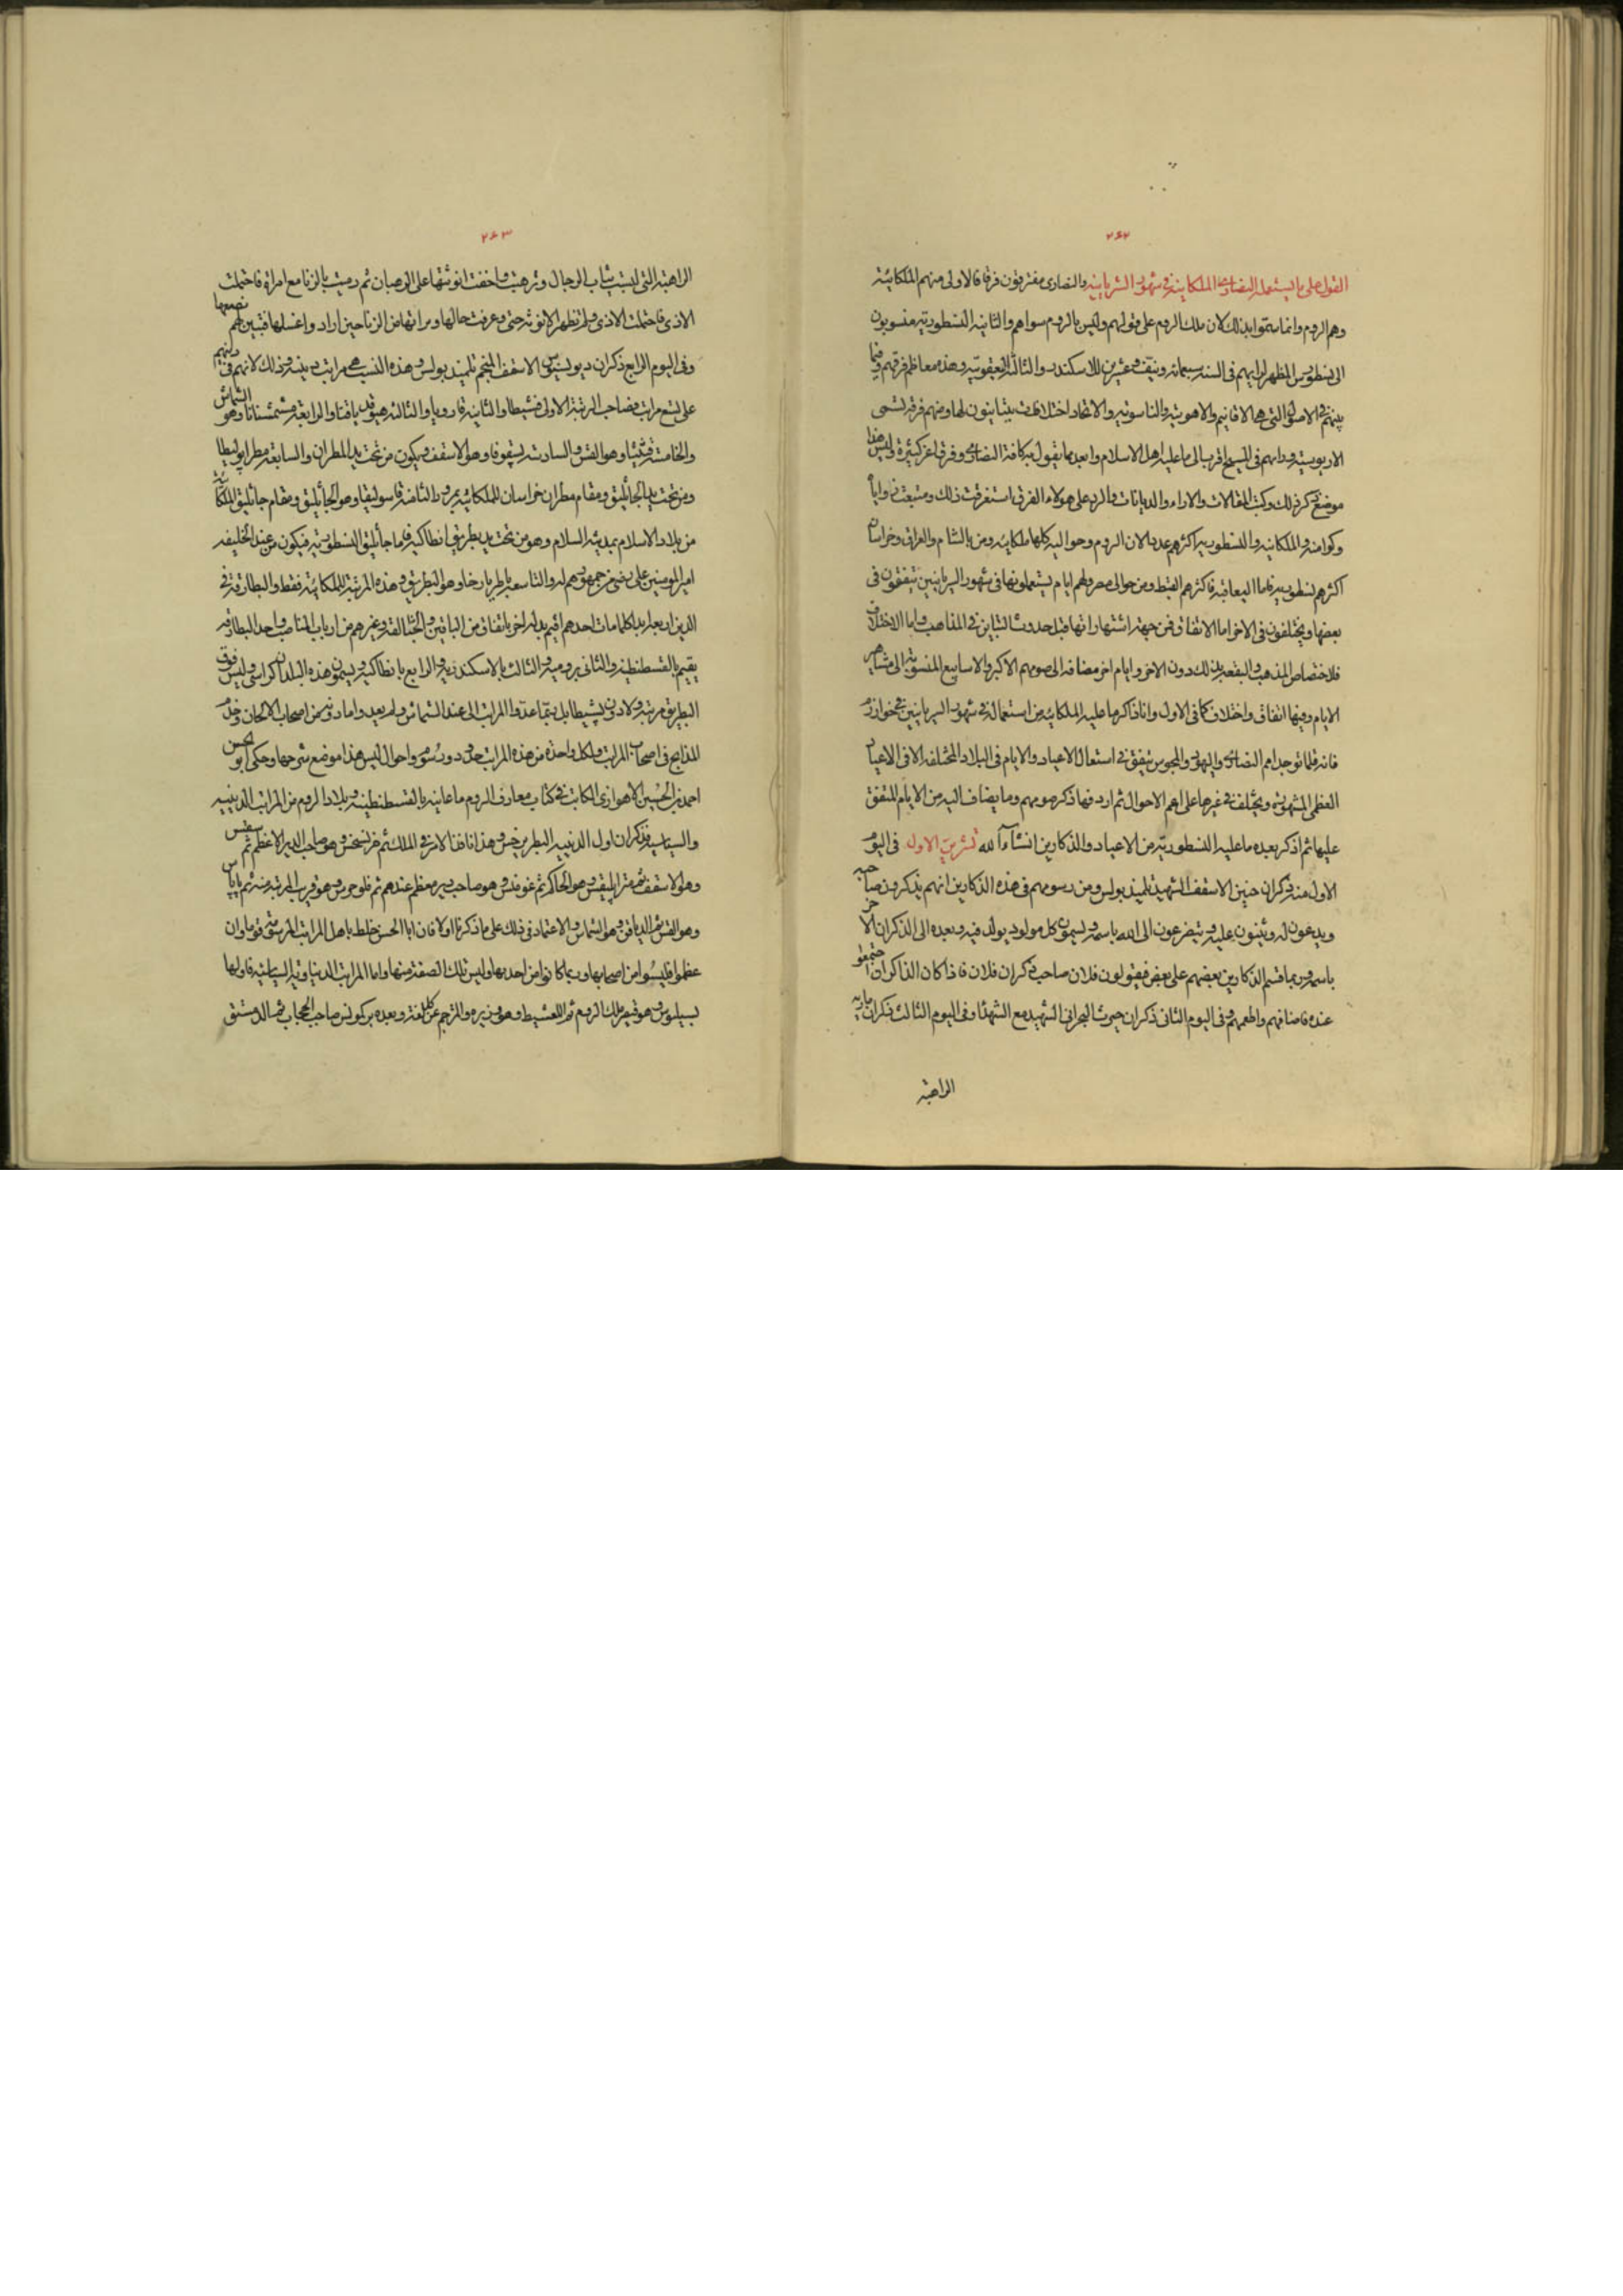 ٢٤٢
القول على ما يستعمله النصارى الملكائية في شهور السريانيين والنصارى مفترقون فرقا فالاولى منهم الملكائية
وهم الروم وانما سموا بذلك لان ملك الروم على قولهم وليس بالروم سواهم والثانية النسطورية منسوبون
الى نسطورس المظهر لرايهم في السنة سبعمائة ونيف وعشرين للاسكندر والثالثة اليعقوبية وهذه معاظم فرقهم وفيما
بينهم في الاصول التي هي الاقانيم والاهوتية والناسوتية والاتحاد اختلافات يتباينون لها ومنهم فرقة تسمى
الاريوسية ورايهم في المسيح اقرب الى ما عليه اهل الاسلام وابعد مما يقول به كافة النصارى وفرق اخر كثيرة وليس هذا
موضع ذكر ذلك وكتب المقالات والاراء والديانات والرد على هولاء الفرق استغرقت ذلك
والملكائية والنسطورية اكثرهم عددا لان الروم وحواليه كلها ملكائية ومن بالشام والعراق وخراسان
اكثرهم نسطورية فاما اليعاقبة فاكثرهم القبط ومن حوالى مصر ولهم ايام يستعملونها في شهور السريانيين يتفقون في
بعضها ويختلفون في الاخر اما الاتفاق فمن جهة اشتهاراتها قبل حدوث التباين في المذاهب واما الاختلاف
فلاختصاص المذهب والبقعة بذلك دون الاخر وايام اخر مضافة الى صومهم الاكبر والاسابيع المنسوبة الى مشاهير
الايام وفيها اتفاق واختلاف كما في الاول وانا ذاكر ما عليه الملكائية من استعماله في شهور السريانيين بخوارزم
فانه قلما توجد امم النصارى واليهود والمجوس تتفق في استعمال الاعياد والايام في البلاد المختلفة الا في الاعياد
العظمى المشهورة ويختلف في غيرها على اعم الاحوال ثم اردفها ذكر صومهم وما يضاف اليه من الايام المتفق
عليها ثم اذكر بعده ما عليه النسطورية من الاعياد والذكارين انشاء الله تشرين الاول في اليوم
الاول منه ذكران حنين الاسقف الشهيد تلميذ بولس ومن رسومهم في هذه الذكارين انهم يذكرون صاحبه
ويدعون له ويثنون عليه ويتضرعون الى الله باسمه ويسمون كل مولود يولد فيه وبعده الى الذكران الاخر
باسمه وربما قسم الذكارين بعضهم على بعض فيقولون فلان صاحب ذكران فلان فاذا كان الذاكران اجتمعوا
عنده فاضافهم واطعمهم وفي اليوم الثاني ذكران حيوث البحراني الشهيد مع الشهداء وفي اليوم الثالث ذكران مارية
الراهبة
٢٤٣
الراهبة التي لبست ثياب الرجال وترهبت واخفت انوثتها على الرهبان ثم رميت بالزنا مع امراة فاحتملت
الاذى فاحتملت الاذى ولم تظهر الانوثة حتى وعرفت حالها وبراتها من الزنا حين ارادوا غسلها فتبين لهم بضعها
وفي اليوم الرابع ذكران ديونيسيوس الاسقف المنجم تلميذ بولس وهذه النسب هي مراتب دينية وذلك لانهم في دينهم
على تسع مراتب فصاحب الرتبة الاولى فسيطا والثانية قارويا والثالثة هيبوقدياقنا والرابعة مشمشنانا وهو الشماس
والخامسة قشيشا وهو القس والسادسة ابسقوفا وهو الاسقف ويكون من تحت يد المطران والسابعة مطرابوليطا
ومن تحت يد الجاثليق ومقام مطران خراسان للملكائية بمرو والثامنة قاسوليقا وهو الجاثليق ومقام جاثليق الملكائية
من بلاد الاسلام بمدينة السلام وهو من تحت يد بطريق انطاكية فاما جاثليق النسطورية فيكون من عند الخليفة
امير المومنين على رضى من جمهورهم له والتاسعة باطريارخا وهو البطريق وهذه المرتبة للملكائية فقط والبطارقة في
الدين اربعة ابدا كلما مات احدهم اقيم بدله اخر باتفاق من الباقين والجثالقة وغيرهم من ارباب المناصب واحد البطارقة
يقيم بالقسطنطينية والثاني برومية والثالث بالاسكندرية والرابع بانطاكية ويسمون هذه البلدان كراسى وليس فوق
البطريق مرتبة ولا دون فسيطا بل يتقاعد المراتب الى عند الشماس ولم يعد واما دونه من اصحاب الالحان وخدم
المذابح في اصحاب المراتب ولكل واحدة من هذه المراتب حدود ورسوم واحوال ليس هذا موضع شرحها وحكى ابو الحسن
احمد بن الحسين الاهوازي الكاتب في كتاب معارف الروم ما عاينه بالقسطنطينية وبلاد الروم من المراتب الدينية
والسياسية فذكر ان اول الدينية البطريرخس وهذا نافذ الامر في الملك ثم خرنسخس وهو صاحب الدير الاعظم ثم سقفس
وهو الاسقف ثم مترابليقس وهو الحاكم ثم غومنس وهو صاحب دير معظم عندهم ثم قلوجرس وهو قريب المرتبة منه ثم باباس
وهو القس ثم الدياقن وهو الشماس والاعتماد في ذلك على ما ذكرنا اولا فان ابا الحسن خلط باهل المراتب المرسومة قوما وان
عظموا فليسوا من اصحابها وربما كانوا من احدها وليس تلك الصفة منها واما المراتب الدنياوية السياسية فاولها
بسيليوس وهو قيصر ملك الروم ثم اللغثيط وهو وزيره والمترجم عن كل لغة وبعده بركونس صاحب الحجاب ثم الدمستق